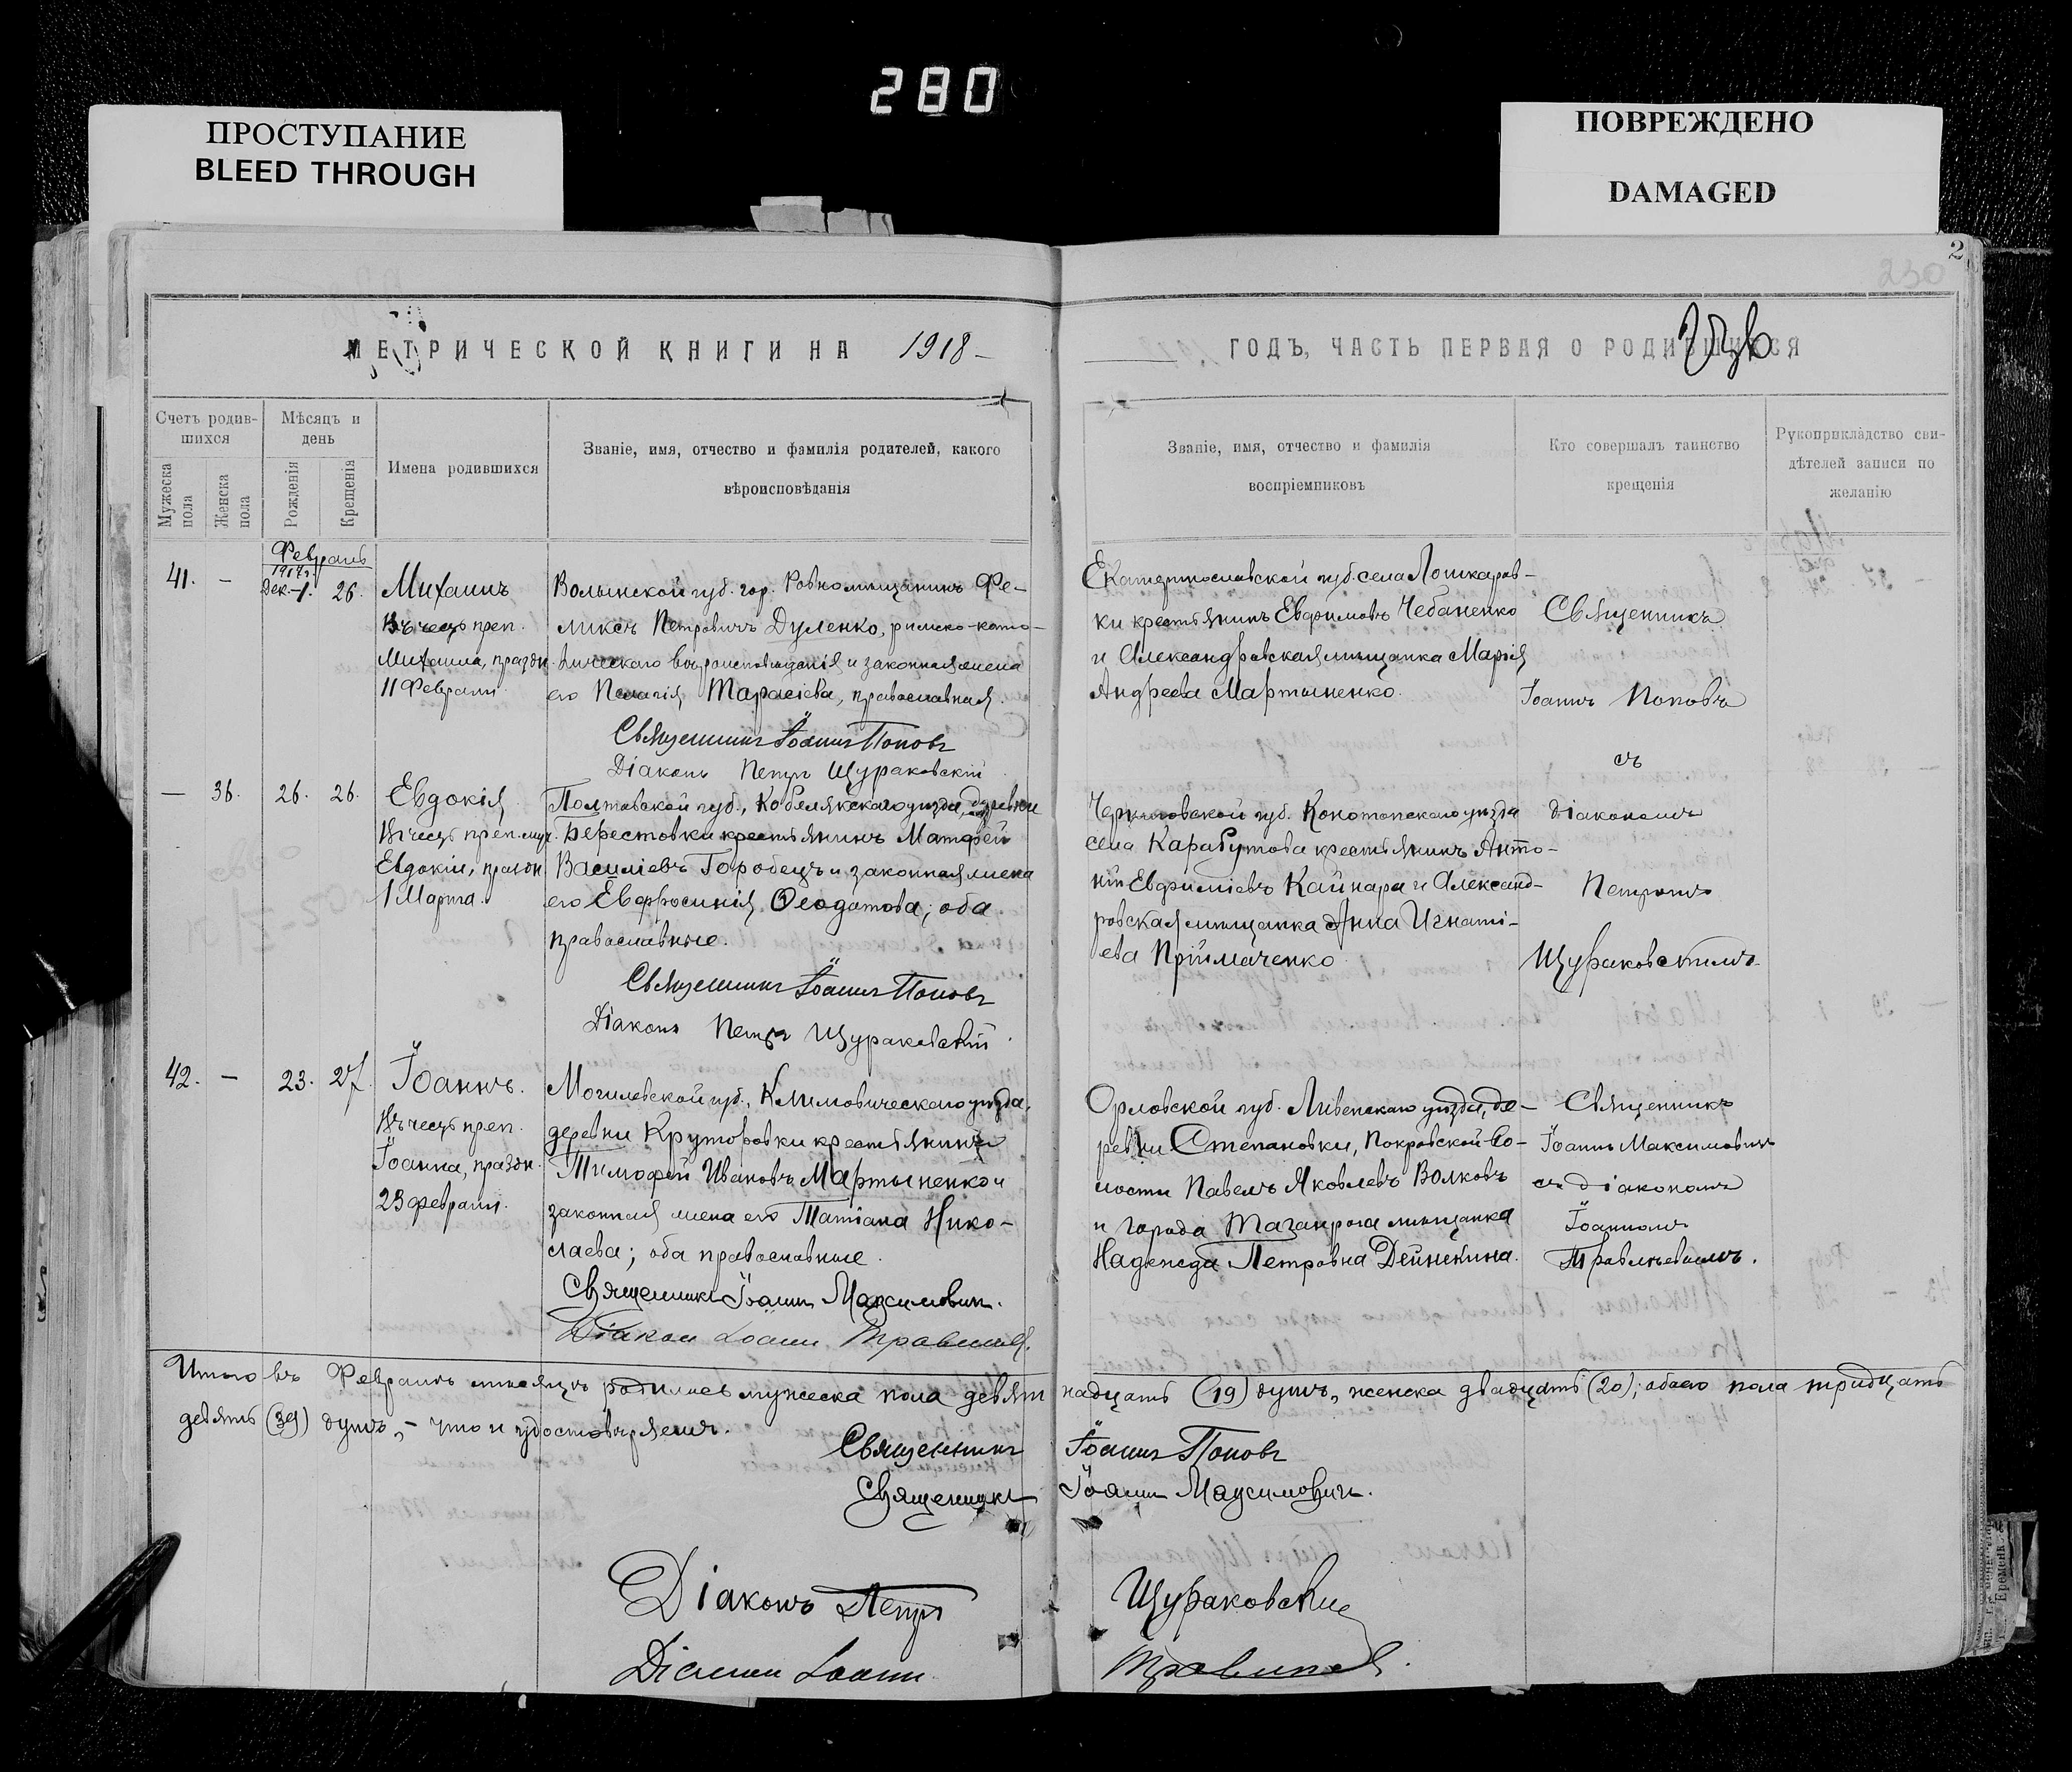 280
ПРОСТУПАНИЕ
BLEED THROUGH
ПОВРЕЖДЕНО
DAMAGED
2
230
МЕТРИЧЕСКОЙ КНИГИ НА 1918
ГОДЪ, ЧАСТЬ ПЕРВАЯ О РОДИВШИХСЯ
Счетъ родив-
шихся
Мужеска пола
Женска пола
Мѣсяцъ и
день
Рожденія
Крещенія
Имена родившихся
Званіе, имя, отчество и фамилія родителей, какого
вѣроисповѣданія
Званіе, имя, отчество и фамилія
воспріемниковъ
Кто совершалъ таинство
крещенія
Рукоприкладство сви-
дѣтелей записи по
желанію
Февраль
41. –
1917 г.
Дек.-1. 26.
Михаилъ
Въ честь преп.
Михаила, праздн.
11 Февраля.
Волынской губ. гор. Ровно мѣщанинъ Фе-
ликсъ Петровичъ Дуленко, римско-като-
лическаго вѣроисповѣданія и законная жена
его Пелагія Тарасіева, православная.
Священникъ Іоаннъ Поповъ
Діаконъ Петръ Щураковскій
Екатеринославской губ. села Лошкаров-
ки крестьянинъ Евфимовъ Чебаненко
и Александровская мѣщанка Марія
Андреева Мартыненко.
Священникъ
Іоаннъ Поповъ
съ
діакономъ
Петромъ
Щураковскимъ
— 36. 26. 26.
Евдокія
Въ честь преп. муч.
Евдокіи, праздн.
1 Марта.
Полтавской губ., Кобелякскаго уѣзда, деревни
Берестовки крестьянинъ Матфей
Василіевъ Горобецъ и законная жена
его Евфросинія Ѳеодотова; оба
православные.
Священникъ Іоаннъ Поповъ
Діаконъ Петръ Щураковскій
Черниговской губ. Конотопскаго уѣзда
села Карабутова крестьянинъ Анто-
ній Евфиміевъ Кайнара и Александ-
ровская мѣщанка Анна Игнаті-
ева Приймаченко
42. – 23. 27.
Іоаннъ.
Въ честь преп.
Іоанна, праздн.
23 февраля.
Могилевской губ., Климовическаго уѣзда,
деревни Круторовки крестьянинъ
Тимофей Ивановъ Мартыненко и
законная жена его Татіана Нико-
лаева; оба православные.
Священникъ Іоаннъ Максимовичъ.
Діаконъ Іоаннъ
Орловской губ. Ливенскаго уѣзда, де-
ревни Степановки, Покровской во-
лости Павелъ Яковлевъ Волковъ
и города Таганрога мѣщанка
Надежда Петровна Дейнекина.
Священникъ
Іоаннъ Максимовичъ
съ діакономъ
Іоанномъ
Итого въ Февралѣ мѣсяцѣ родилось мужеска пола девятнадцать (19) душъ, женска двадцать (20); обоего пола тридцать
девять (39) душъ, – что и удостовѣряемъ.
Священникъ Іоаннъ Поповъ
Священникъ Іоаннъ Максимовичъ.
Діаконъ Петръ Щураковскій
Діаконъ Іоаннъ